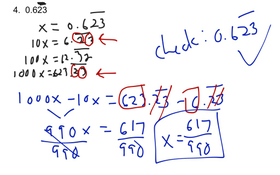 4. 0.62̅3̅
x = 0.62̅3̅
10x = 6.2̅3̅ ←
100x = 62.3̅2̅
1000x = 623.2̅3̅ ←
check: 0.62̅3̅ ✓
1000x - 10x = 623.2̅3̅ - 6.2̅3̅
990x = 617
990 990
x = 617
990